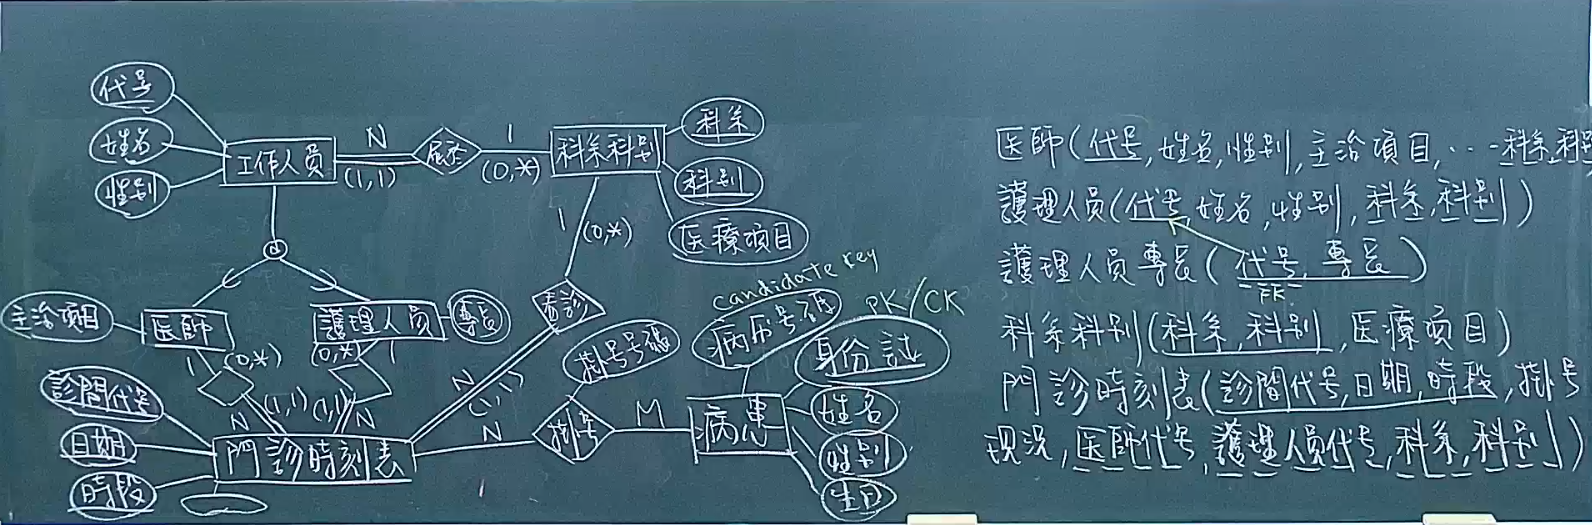 代号
姓名
性别
工作人員
N
(1,1)
1
(0,*)
科系科别
科系
科别
医療項目
d
1
(0,*)
主治項目
医師
護理人員
專長
1
(0,*)
(0,*)
1
N
(1,1)
(1,1)
N
看診
N
(1,1)
診間代号
日期
時段
門診時刻表
N
掛号
掛号号碼
M
病患
candidate key
病历号碼
PK/CK
身份証
姓名
性别
生日
医師(代号,姓名,性别,主治項目,...科系,科别
護理人員(代号,姓名,性别,科系,科别)
護理人員專長(代号,專長)
FK
科系科别(科系,科别,医療項目)
門診時刻表(診間代号,日期,時段,掛号
現况,医師代号,護理人員代号,科系,科别)